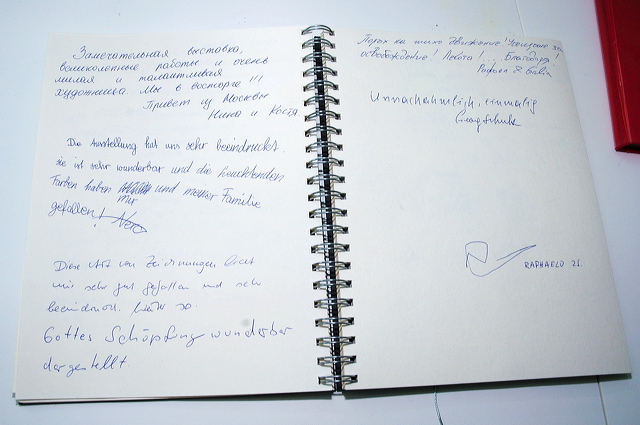 Замечательная выставка,
великолепные работы и очень
милая и талантливая
художница. Мы в восторге!!!
Привет из Москвы
Нина и Костя
Die Ausstellung hat uns sehr beeindruckt.
sie ist sehr wunderbar und die leuchtenden
Farben haben mir und meiner Familie
gefallen! Nero
Diese Art von Zeichnungen
mir sehr gut gefallen und sehr
beeindruckt. so.
Gottes Schöpfung wunderbar
dargestellt.
движение!
освобождение!
Unnachahmlich, einmalig
Georg Schulz
RAPHAELO 21.